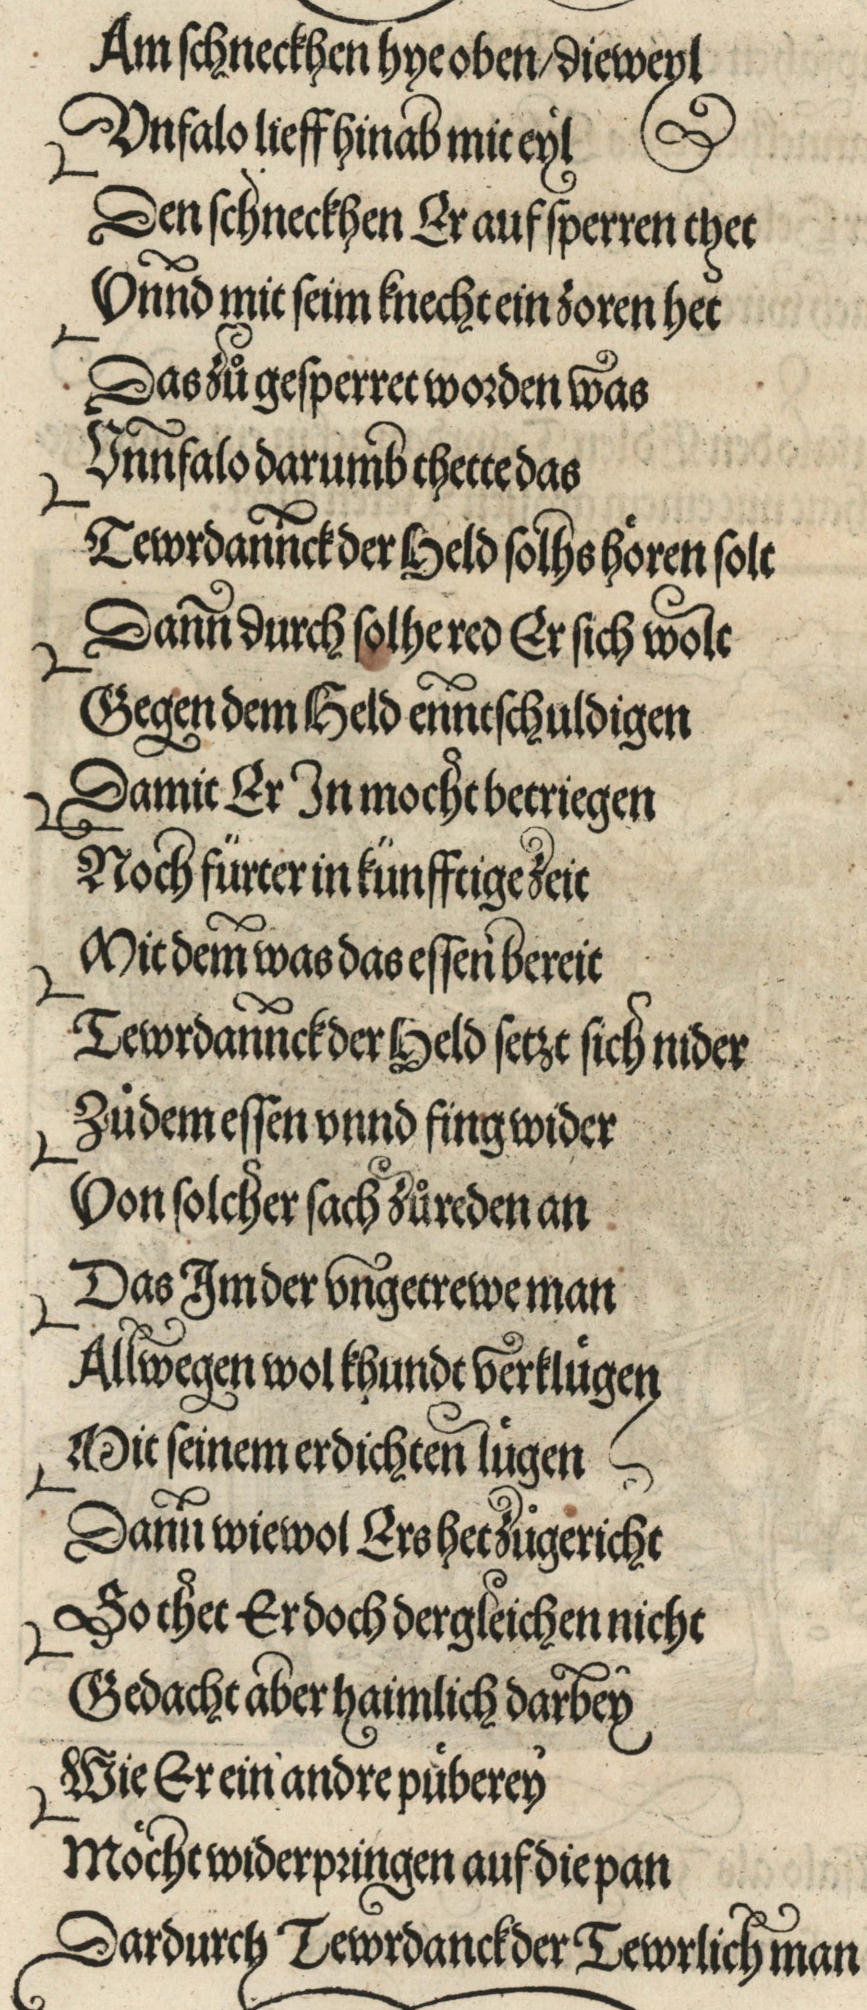 Am schneckhen hye oben/dieweyl
Vnfalo lieff hinab mit eyl
Den schneckhen Er auf sperren thet
Vnnd mit seim knecht ein zoren het
Das zů gesperret worden was
Vnnfalo darumb thette das
Tewrdannck der Held solhs hören solt
Dann durch solhe red Er sich wolt
Gegen dem Held enntschuldigen
Damit Er In mocht betriegen
Noch fürter in künfftige zeit
Mit dem was das essen bereit
Tewrdannck der Held setzt sich nider
Zů dem essen vnnd fing wider
Von solcher sach zů reden an
Das Im der vngetrewe man
Allwegen wol khundt verklügen
Mit seinem erdichten lügen
Dann wiewol Ers het zůgericht
So thet Er doch dergleichen nicht
Gedacht aber haimlich darbey
Wie Er ein andre püberey
Möcht wider pringen auf die pan
Dardurch Tewrdanck der Tewrlich man